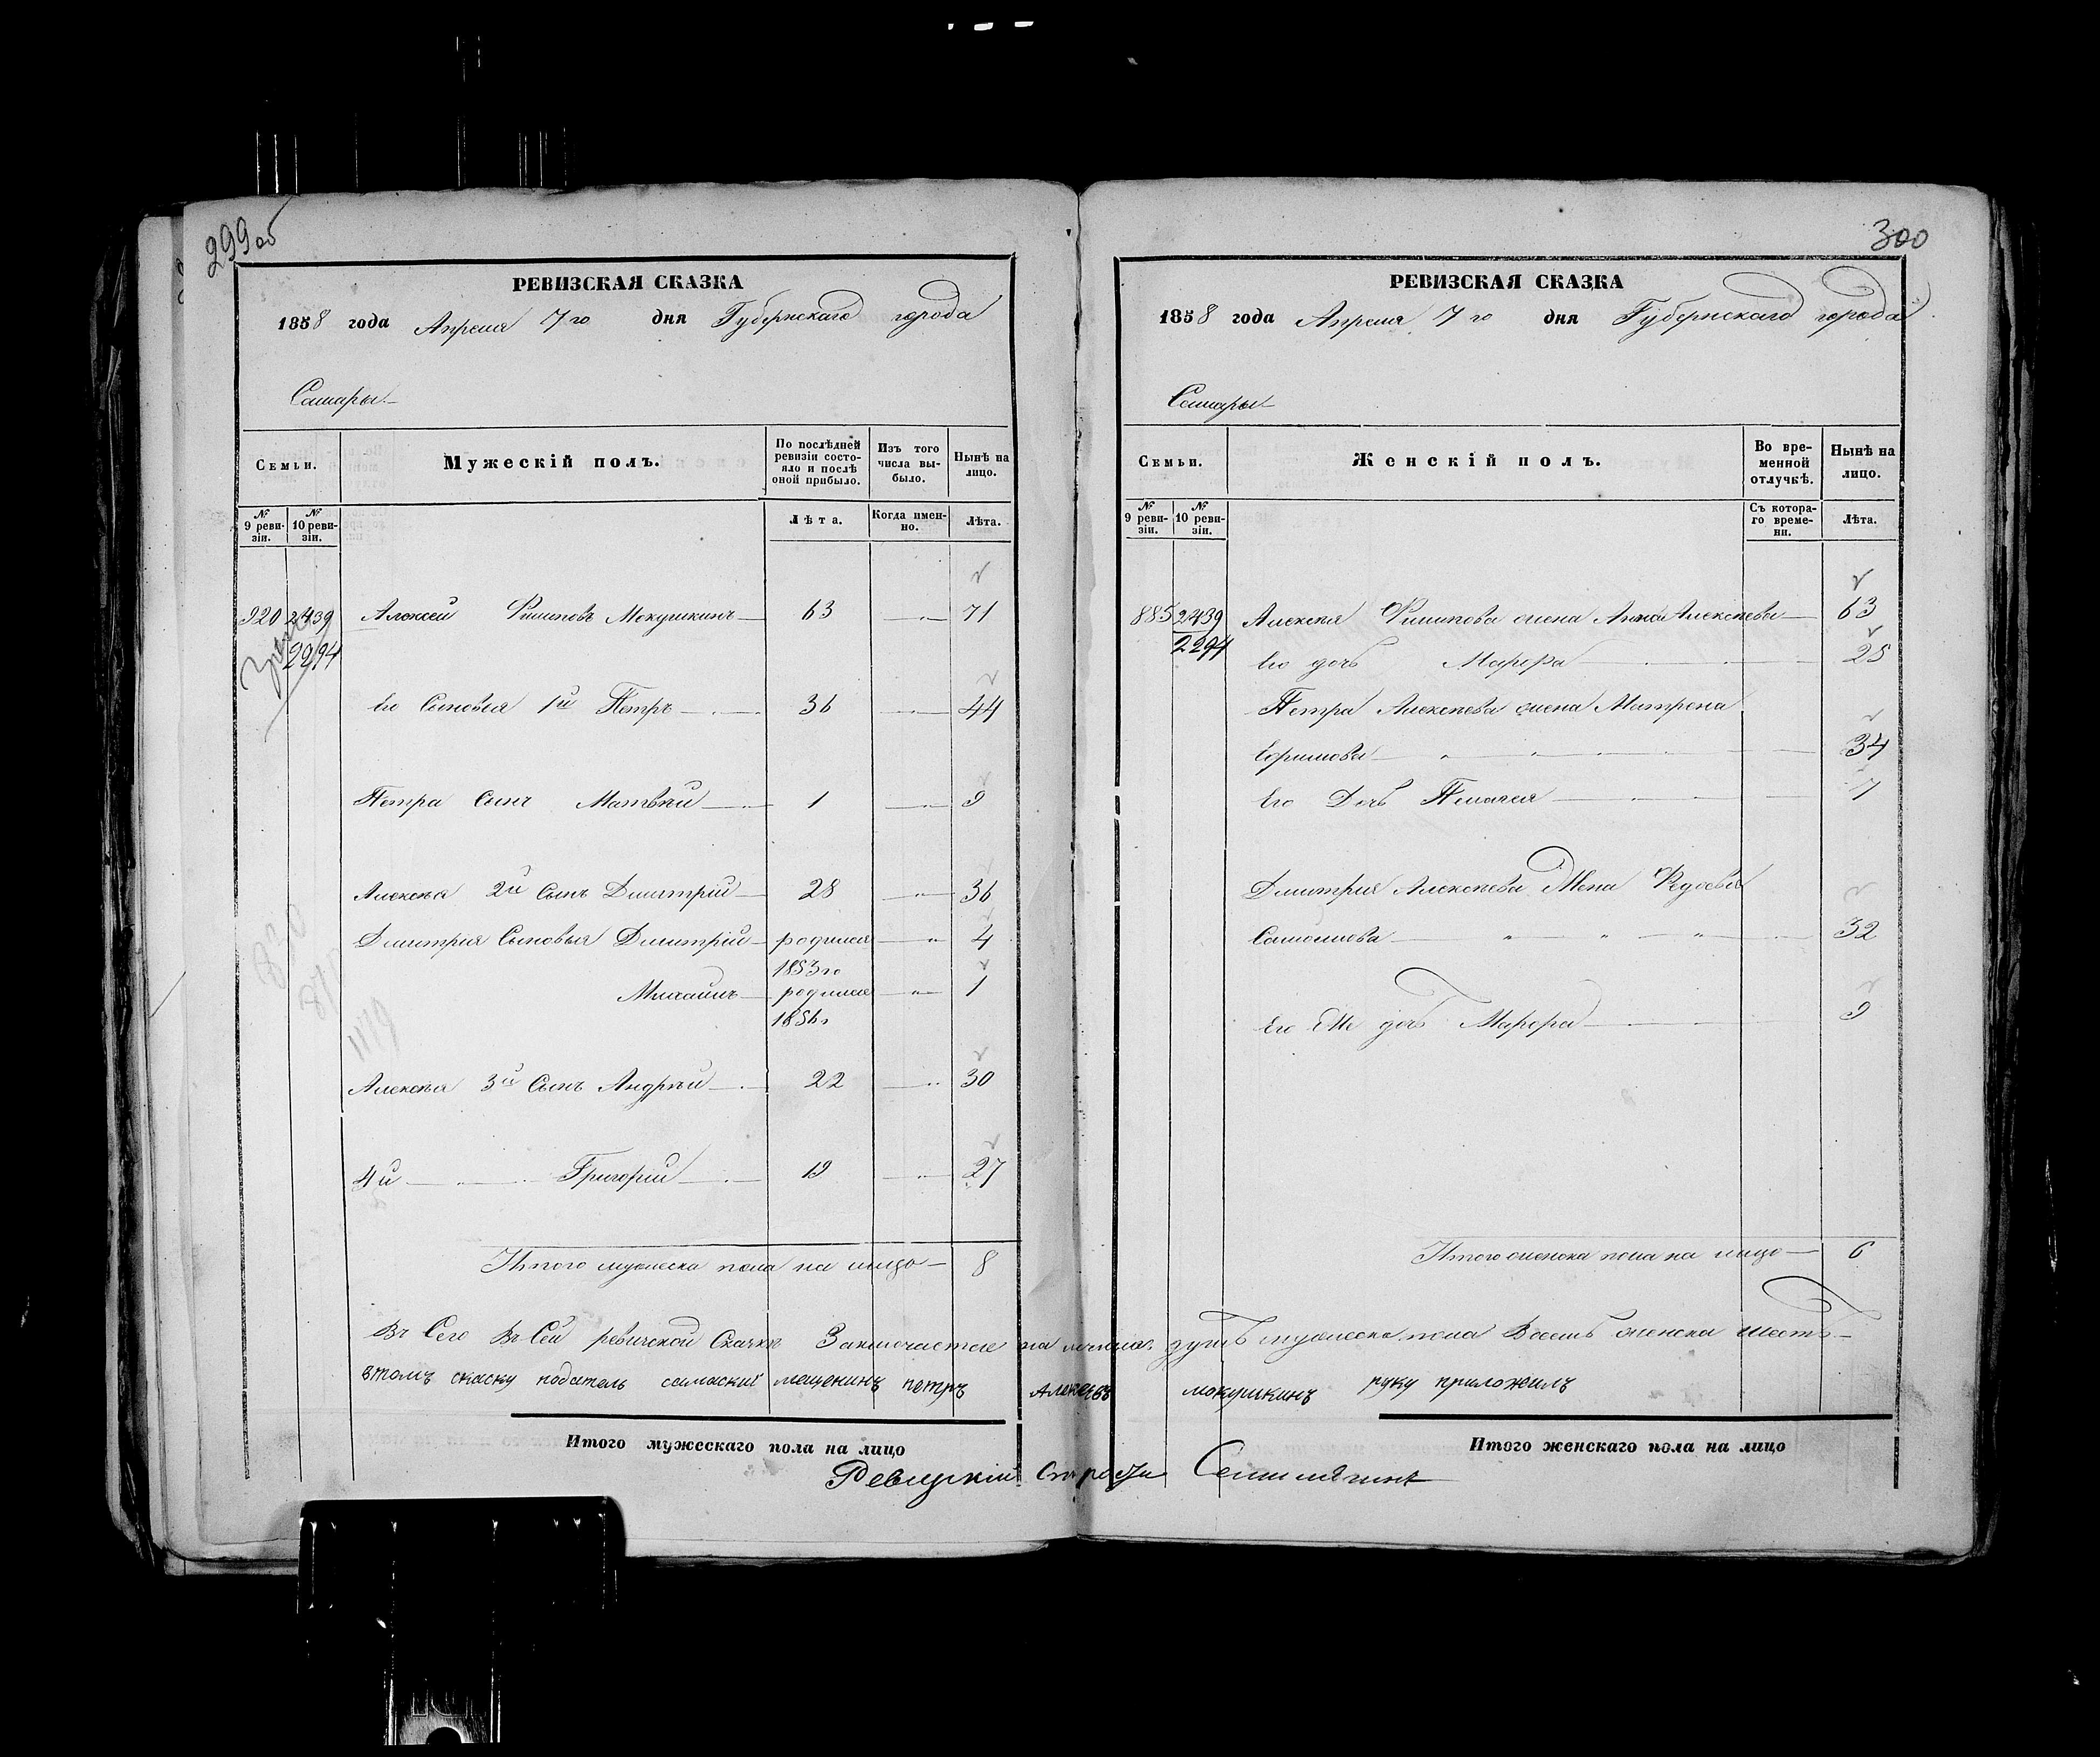 299об
РЕВИЗСКАЯ СКАЗКА
1858 года Апреля 7го дня Губернскаго города
Самары
Семьи.
Мужескій полъ.
По послѣдней ревизіи состояло и послѣ оной прибыло.
Изъ того числа выбыло.
Нынѣ на лицо.
№ 9 ревизіи.
№ 10 ревизіи.
Лѣта.
Когда именно.
Лѣта.
920 2439 Алексей Филиповъ Мокушкинъ 63 71
2294
Его Сыновья 1й Петръ 36 44
Петра Сынъ Матвѣй 1 9
Алексѣя 2й Сынъ Дмитрій 28 36
Дмитрія Сыновья Дмитрій родился 4
1853го
Михаилъ родился 1
1856г
Алексѣя 3й Сынъ Андрѣй 22 30
4й Григорій 19 27
Итого мужеска пола на лицо 8
300
РЕВИЗСКАЯ СКАЗКА
1858 года Апреля 7го дня Губернскаго города
Самары
Семьи.
Женскій полъ.
Во временной отлучкѣ.
Нынѣ на лицо.
№ 9 ревизіи.
№ 10 ревизіи.
Съ котораго времени.
Лѣта.
885 2439 Алексѣя Филипова жена Алексѣева 63
2294
Его дочь Марфа 25
Петра Алексѣева жена Матрена
Ефимова 34
Его Дочь Пелагея 7
Дмитрия Алексѣева Жена Федосья
32
Его Же дочь Марфа 9
Итого женска пола на лицо 6
Въ Сей ревизской Сказкѣ Заключается на лицо душъ мужеска пола Восемь женска шесть
втомъ скаску податель мещенинъ петръ Алексевъ мокушкинъ руку приложилъ
Итого мужескаго пола на лицо
Итого женскаго пола на лицо
Староста